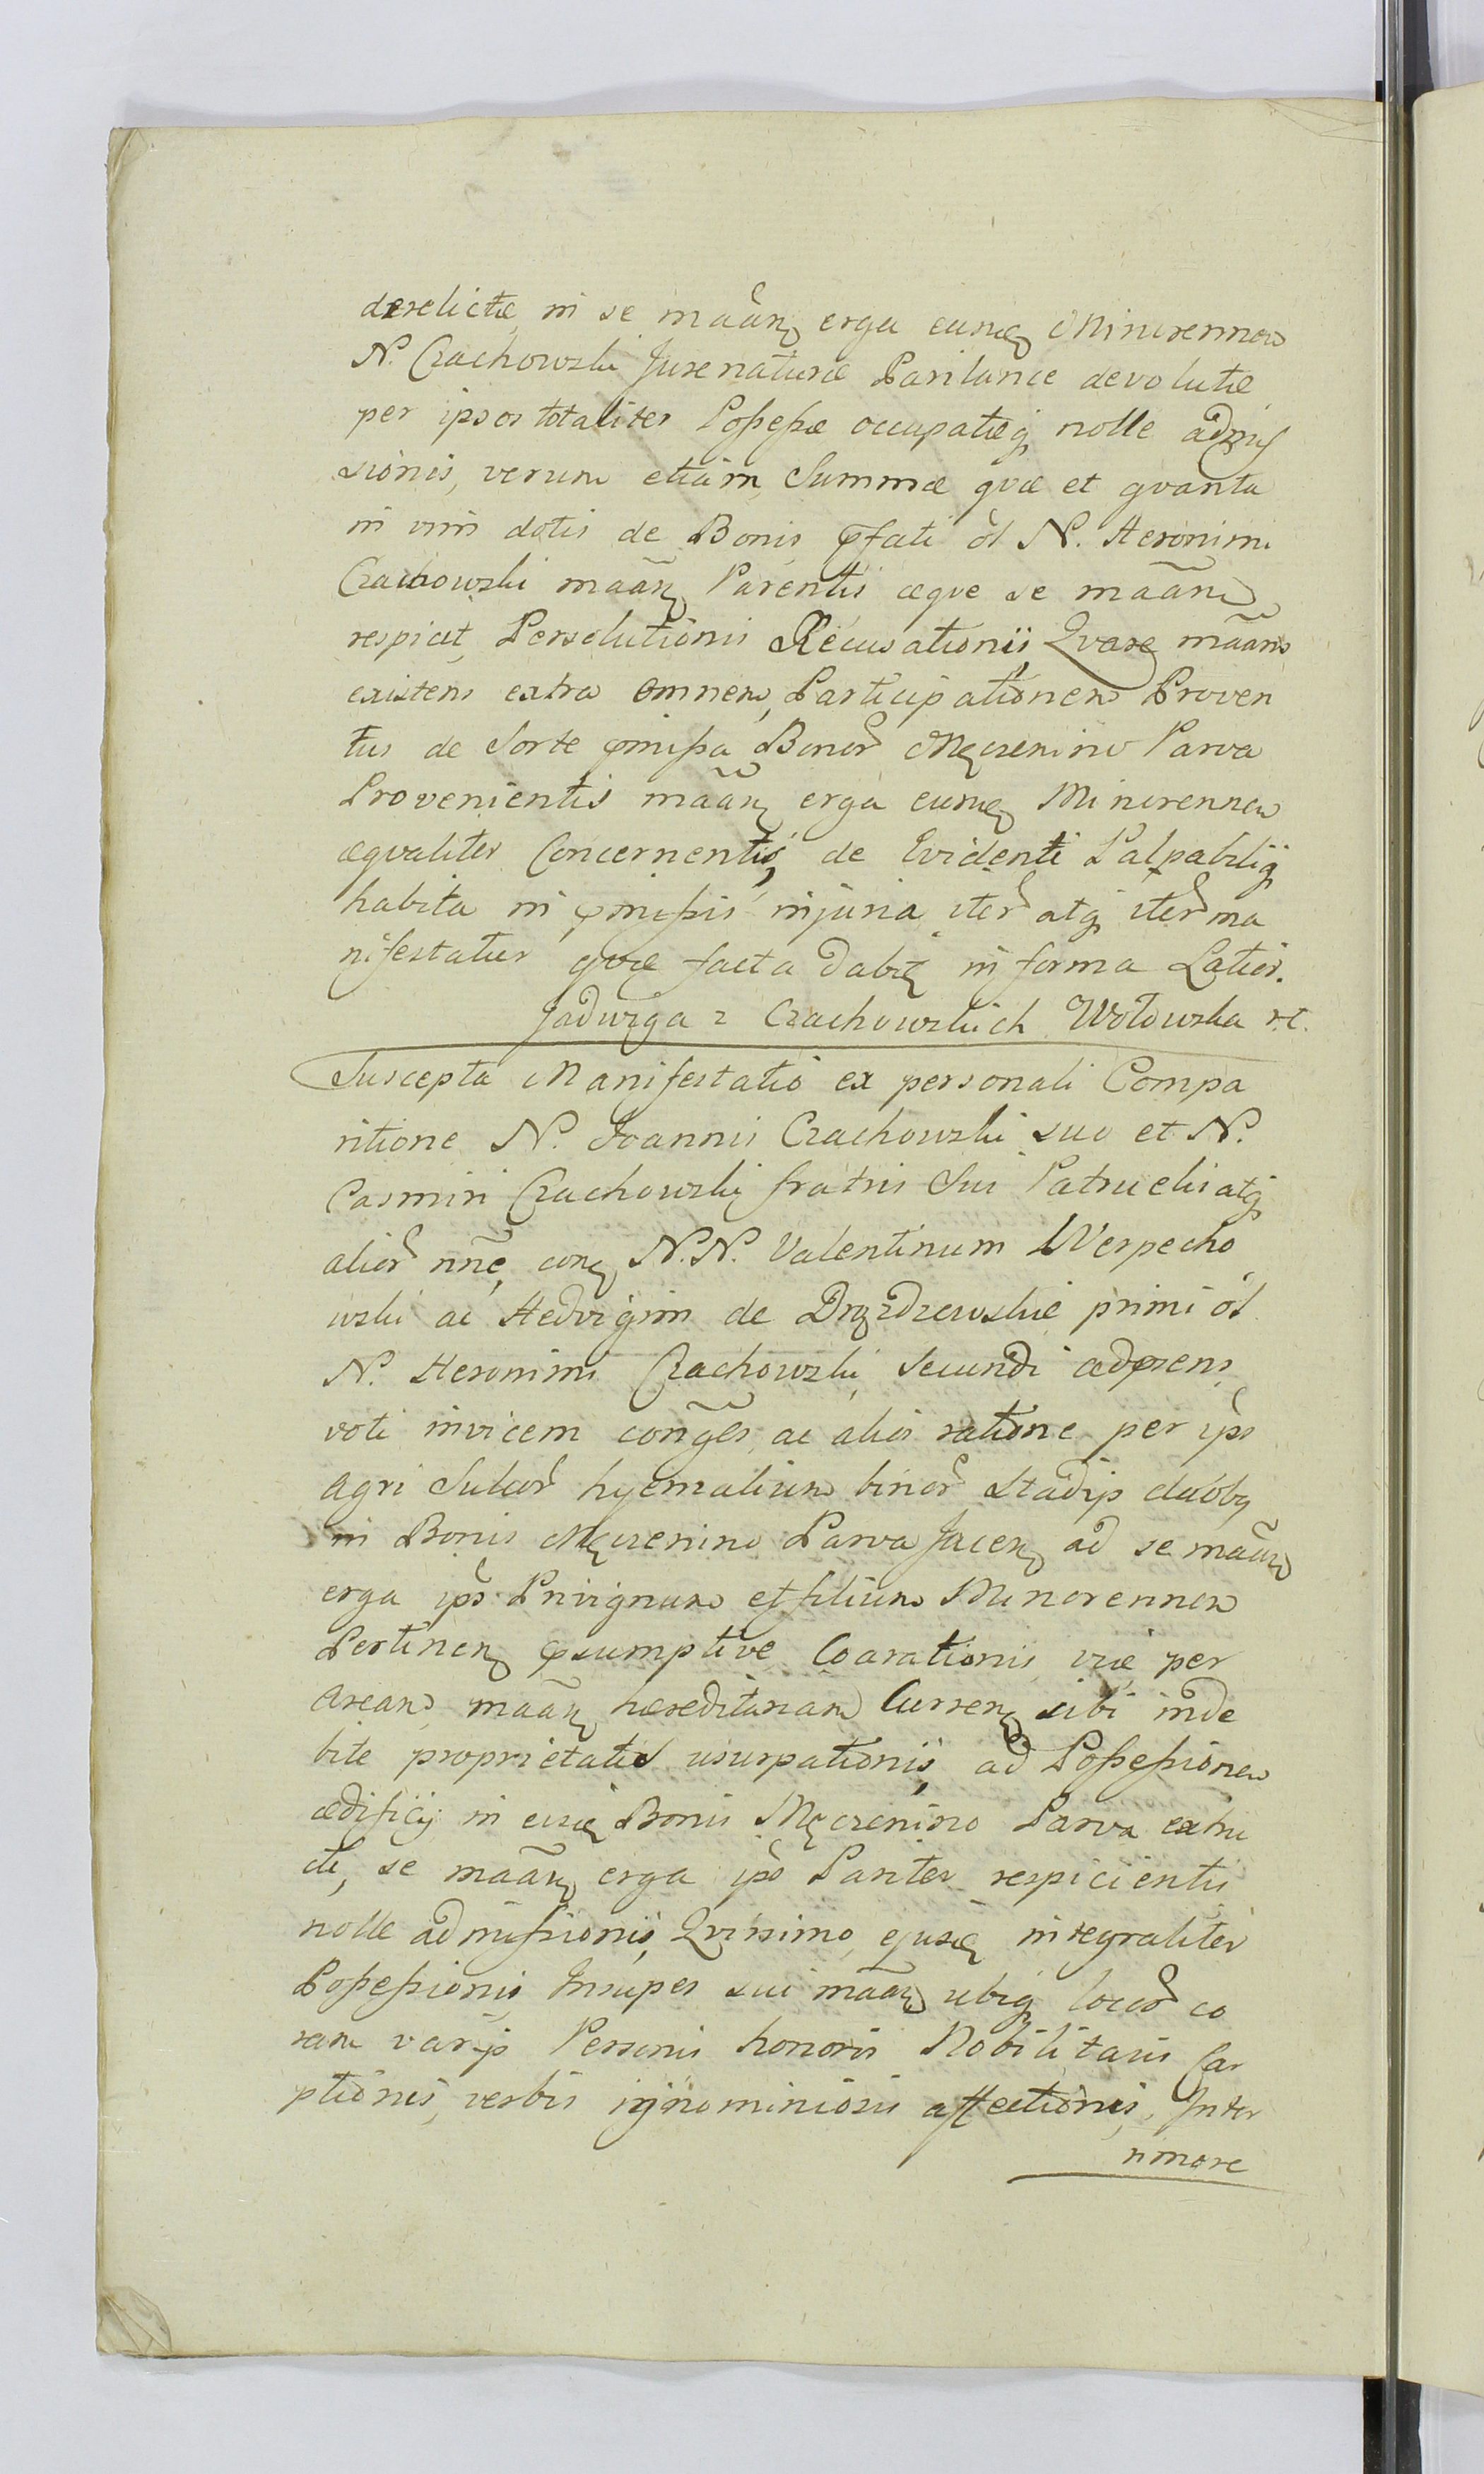 derelictæ, in se maãn erga eund Minorennem
N. Czachowski Jure naturæ Parilance devolutæ
per ipsos totaliter Possessæ occupatæq nolle admis
sionis, verum etiam Summæ qvæ et qvanta
in vim dotis de Bonis pfati ol N. Heronimi
Czachowski maãn Parentis æqve se maãn
respicit, Persolutionis Recusationis, Qvare maãns
existens extra omnem Participationem Proven
tus de Sorte pmissa Bonor Męczenino Parva
Provenientis maãn erga eund Minorennem
æqvaliter Concernentis, de Evidenti Palpabiliq
habita in pmissis injuria iter atq iter ma
nifestatur qvæ facta dabit in forma Latior.
Jadwiga z Czachowskich Wołowska rc.
Suscepta Manifestatio ex personali Compa
ritione N. Joannis Czachowski suo et N.
Casmiri Czachowski fratris Sui Patruelis atq
alior nñe, con N.N. Valentinum Wierpecho
wski ac Hedvigim de Drązdzewskie primi ol
N. Heronimi Czachowski, secundi adprens
voti invicem conges, ac alios ratione per ips
agri Sulcor hyemalium binor Stadijs duobq
in Bonis Męczenino Parva Jacen ad se maãn
erga ips Privignum et filium Minorennem
Pertinen psumptive Coarationis, viæ per
aream, maãn hæreditariam Curren sibi inde
bite proprietatis usurpationis, ad Possessionem
ædificij in eisd Bonis Męczenino Parva extru
cti, se maãn erga ips Pariter respicientis
nolle admissionis, Qvinimo, ejusd integraliter
Possessionis, Insuper sui maãn ubiq locor co
ram varijs Personis honoris Nobilitaris Car
ptionis, verbis ignominiosis affectionis, Inter
rimore